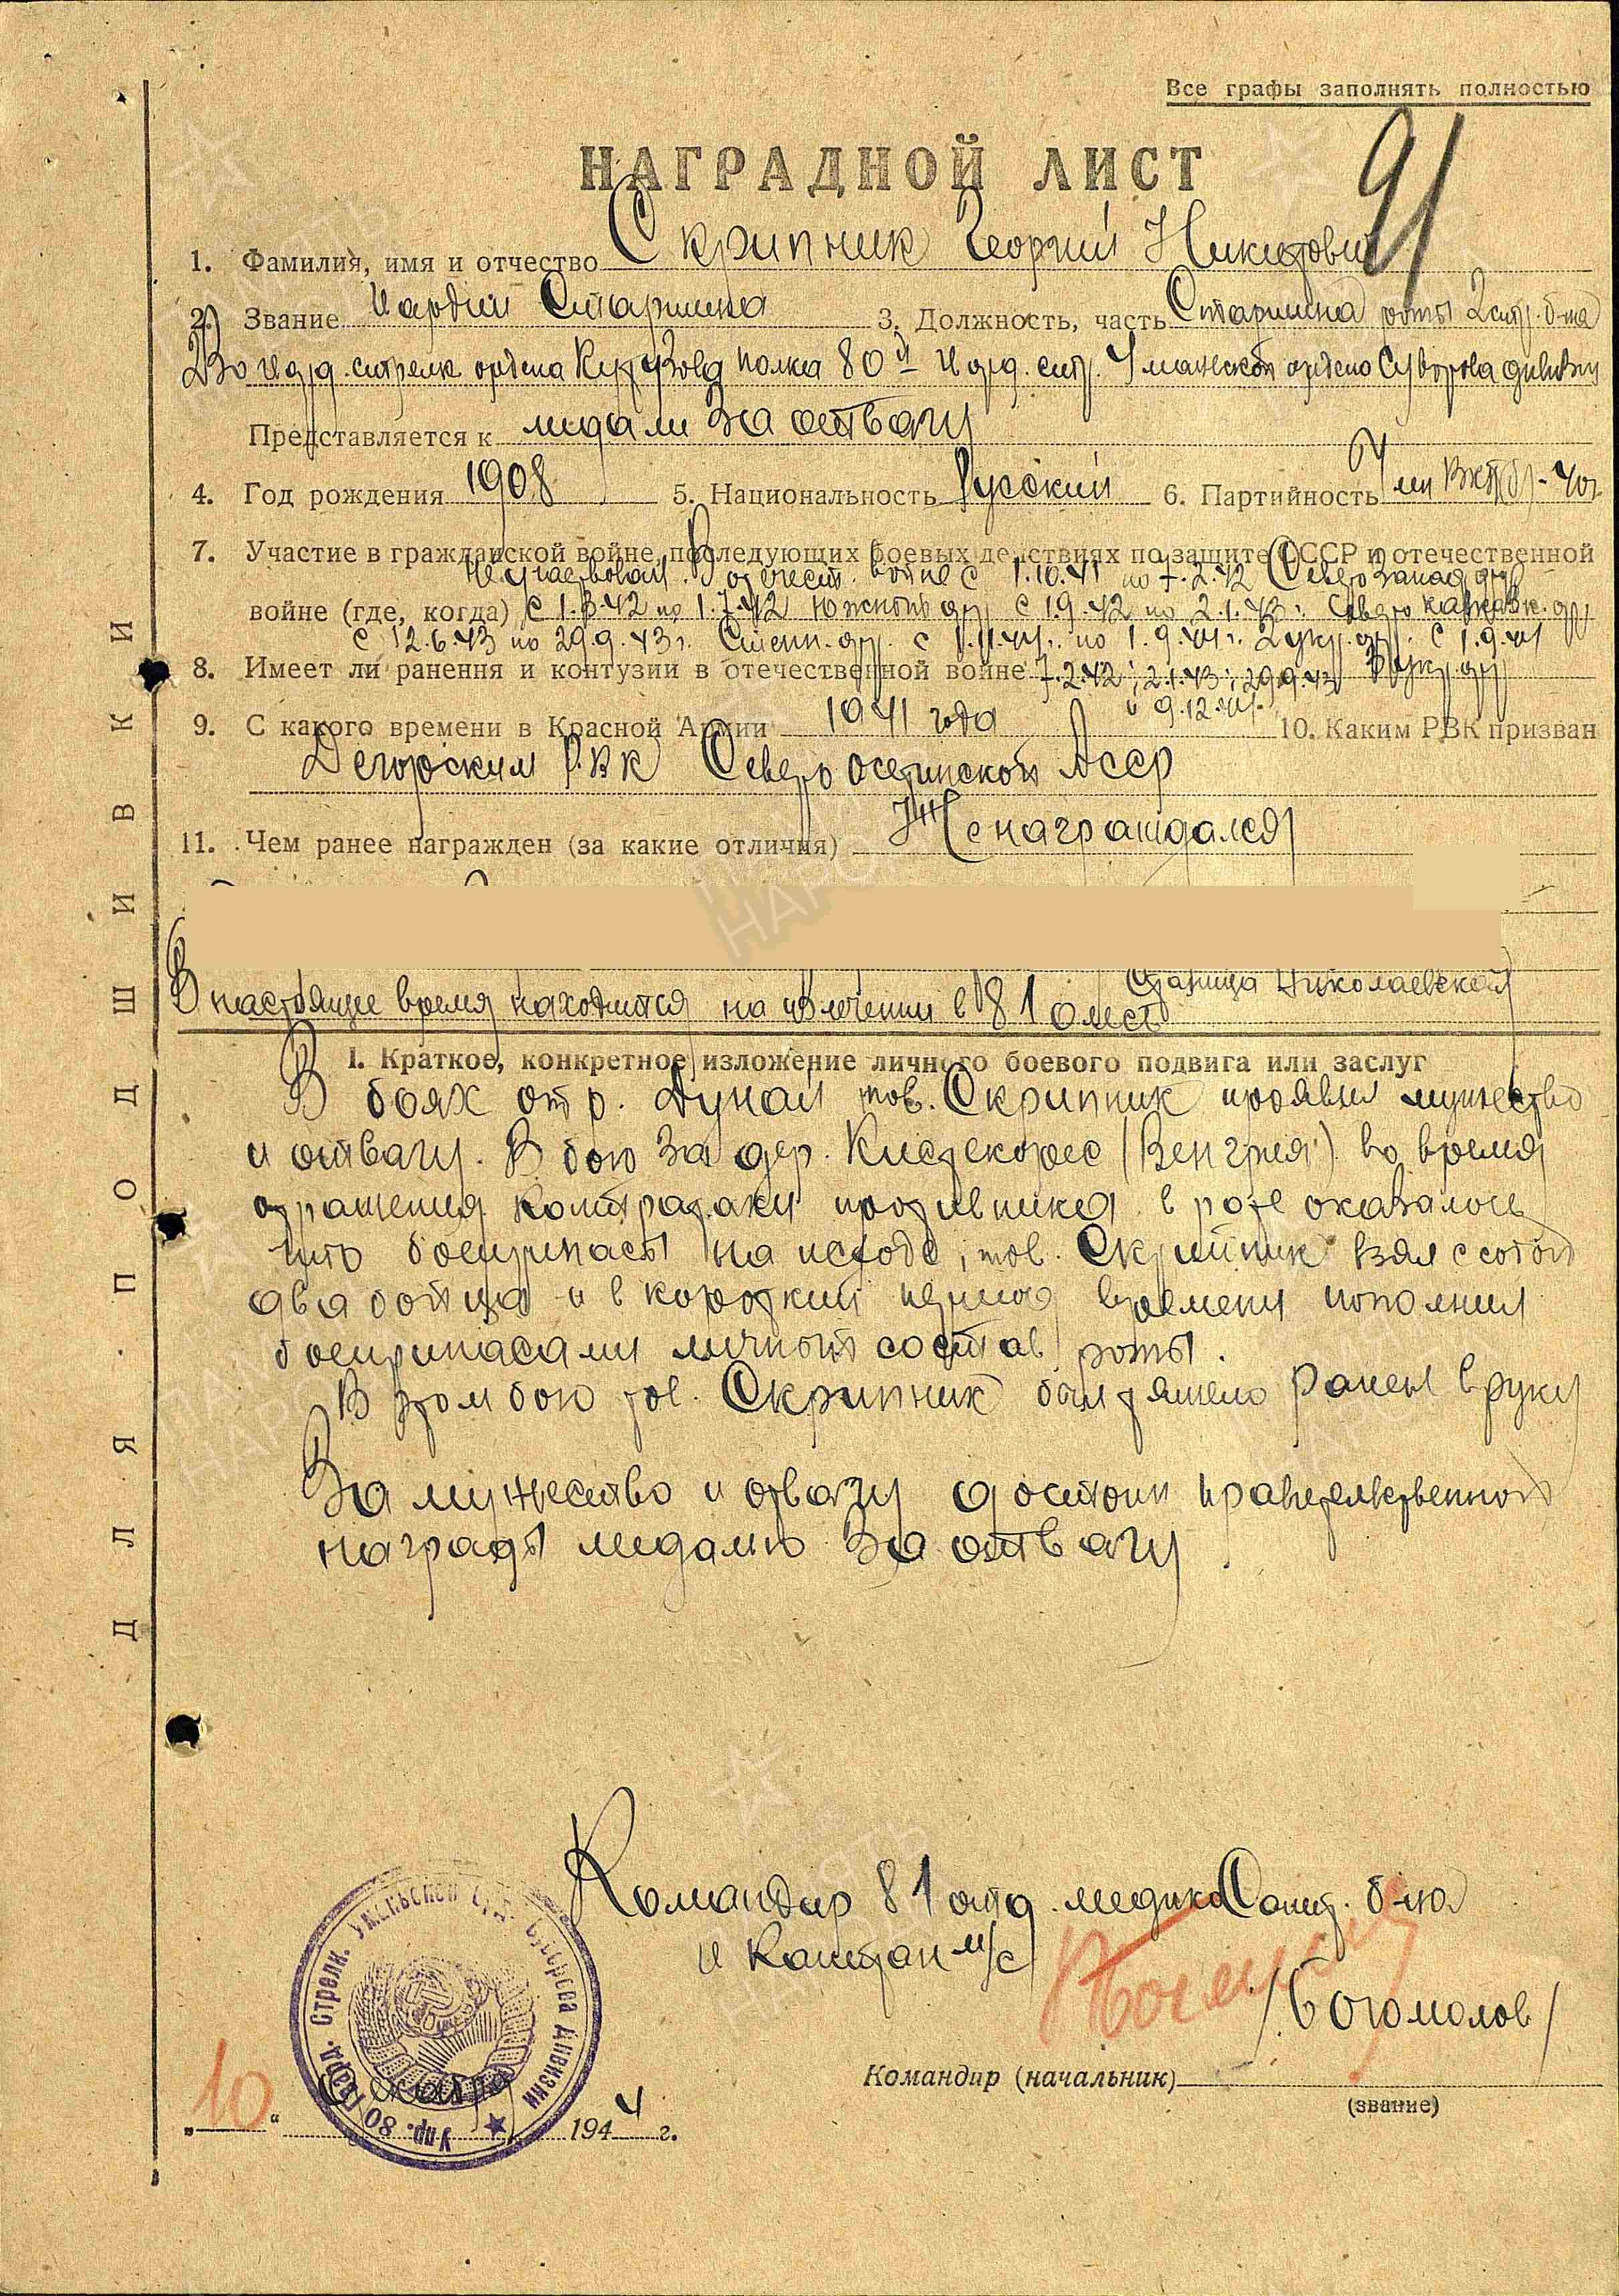 Все графы заполнять полностью
НАГРАДНОЙ ЛИСТ
91
1. Фамилия, имя и отчество Скрипник Георгий Никитович
2. Звание Гвардии Старшина 3. Должность, часть Старшина роты 2 стр. б-на
гвард. стрелк ордена Кутузова полка 80й гвард. стр. Уманской ордена Суворова дивизии
Представляется к медали За отвагу
4. Год рождения 1908 5. Национальность Русский 6. Партийность
7. Участие в гражданской войне, последующих боевых действиях по защите СССР и отечественной
Не участвовал. В отечест. войне с 1.10.41 по 7.2.42 Северо Запад фр
войне (где, когда) с 1.3.42 по 1.7.42 Южном фр с 1.9.42 по 2.1.43г. Северо кавказк. фр
с 12.6.43 по 29.9.43г. Степн. фр. с по 1.9.44г. 2 укр. фр. с 1.9.44
8. Имеет ли ранения и контузии в отечественной войне 7.2.42; 2.1.43; 29.9.43 3 укр фр
и 9.12.44г.
9. С какого времени в Красной Армии 1941 года 10. Каким РВК призван
Дегорским РВК Северо осетинской АССР
11. Чем ранее награжден (за какие отличия) Не награждался
Станица Николаевская
В настоящее время находится на излечении в 81 омсб
I. Краткое, конкретное изложение личного боевого подвига или заслуг
В боях от р. Дунай тов. Скрипник проявил мужество
и отвагу. В бою за дер. (Венгрия) во время
отражения контратаки противника в роте оказалось
что боеприпасы на исходе, тов. Скрипник взял с собой
два бойца и в короткий период времени пополнил
боеприпасами личный состав роты.
В этом бою тов. Скрипник был тяжело ранен в руку
За мужество и отвагу достоин правительственной
награды медалью За отвагу
Командир 81 отд. медикоСанит. б-на
Капитан м/с
/Богомолов/
Командир (начальник)
(звание)
„10“ 1944 г.
Упр. 80 Гвард. Стрелк. Уманьской Суворова Дивизии
ДЛЯ ПОДШИВКИ
ПАМЯТЬ НАРОДА